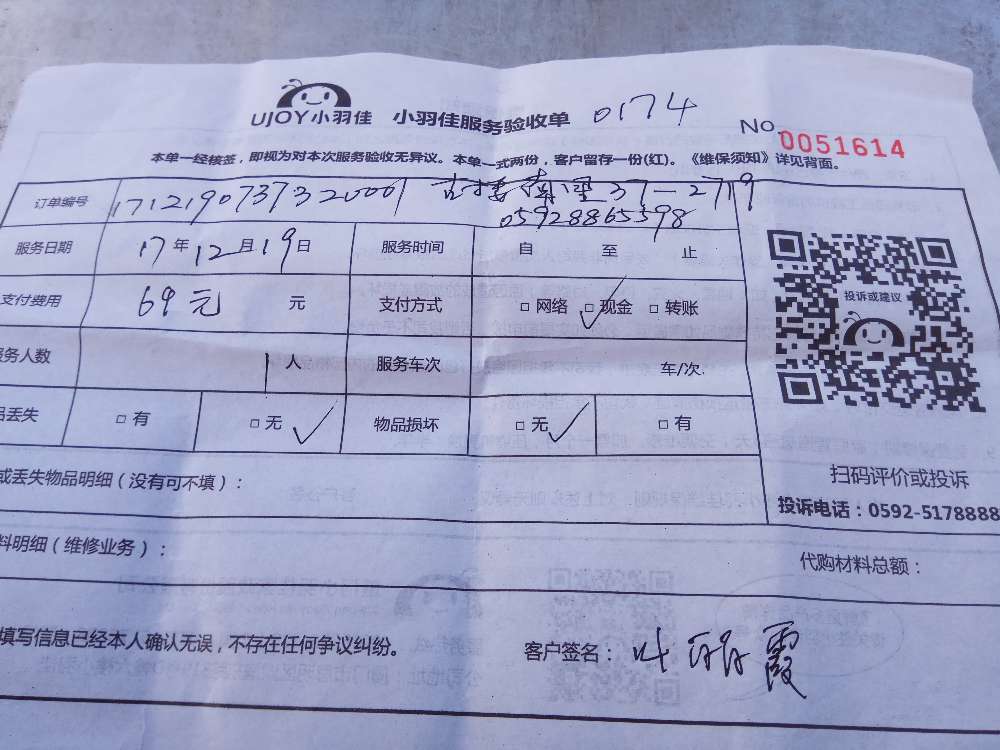 UJOY小羽佳 小羽佳服务验收单 0174
No. 0051614
本单一经核签，即视为对本次服务验收无异议。本单一式两份，客户留存一份(红)。《维保须知》详见背面。
订单编号 17121907373320001 37-2719
05928865598
服务日期 17年12月19日 服务时间 自 至 止
支付费用 69元 元 支付方式 □网络 □现金 □转账
服务人数 1人 服务车次 车/次
品丢失 □有 □无 物品损坏 □无 □有
投诉或建议
扫码评价或投诉
投诉电话：0592-5178888
或丢失物品明细（没有可不填）：
料明细（维修业务）： 代购材料总额：
填写信息已经本人确认无误，不存在任何争议纠纷。 客户签名：叶 霞